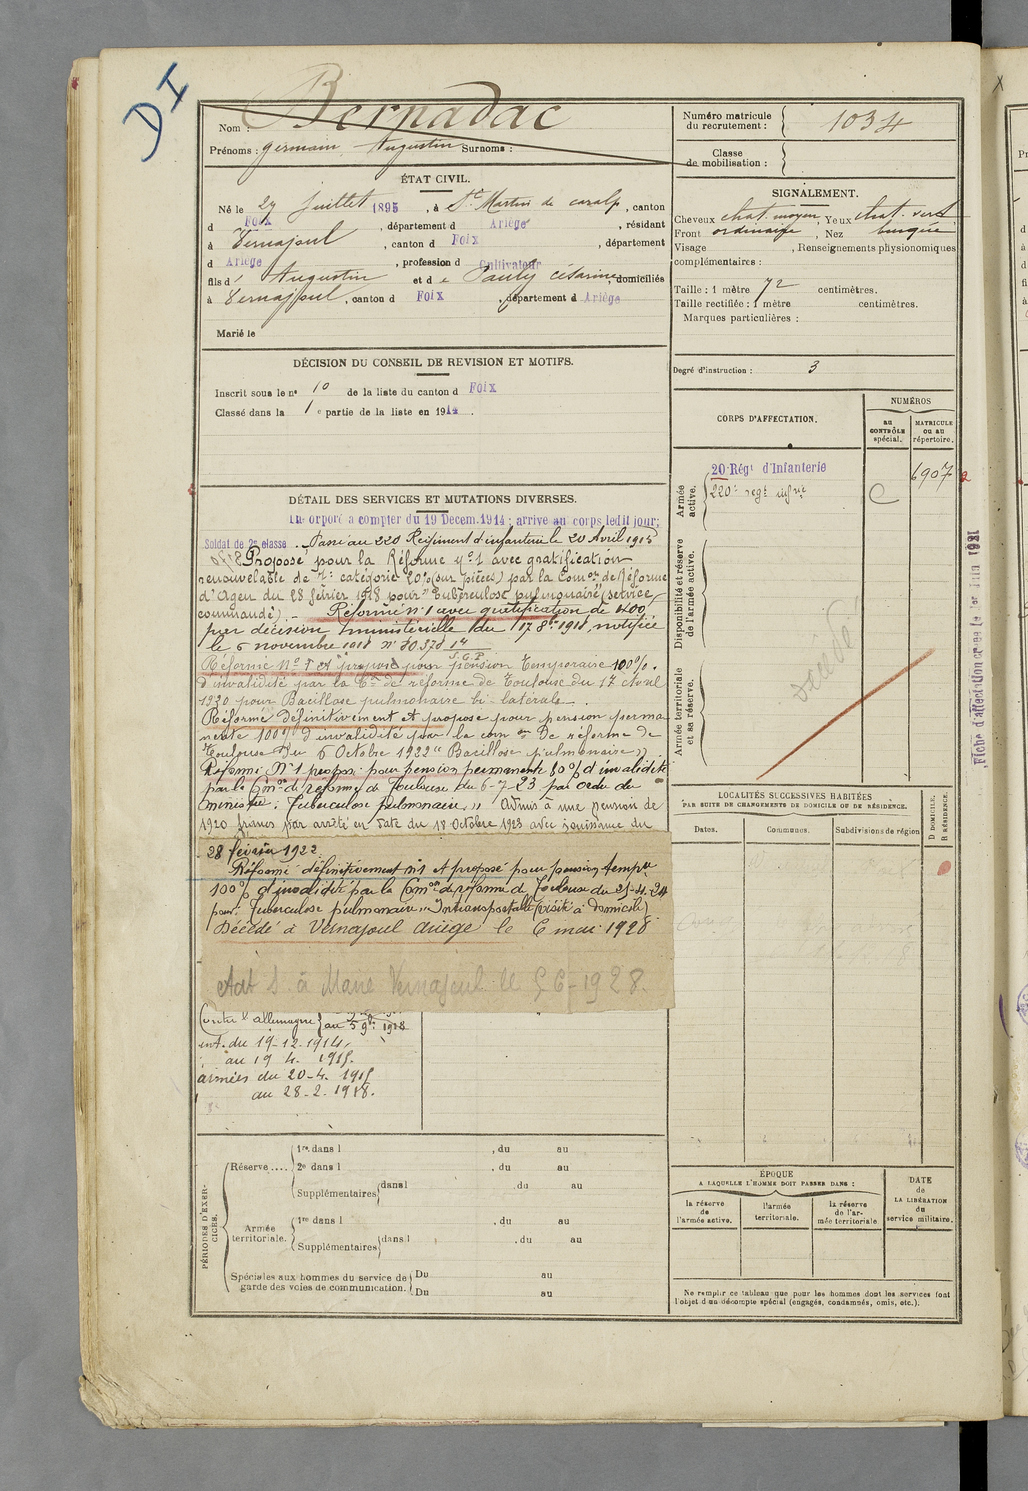 DI
Nom : Bernadac
Prénoms : germain Augustin Surnoms :
Numéro matricule du recrutement : 1034
Classe de mobilisation :
ÉTAT CIVIL.
Né le 27 Juillet 1895, à St Martin de caralp, canton
d Foix, département d Ariège, résidant
à Vernajoul, canton d Foix, département
d Ariège, profession d Cultivateur
fils d' Augustin et d e Pauly césarine, domiciliés
à Vernajoul, canton d Foix, département d Ariège
Marié le
SIGNALEMENT.
Cheveux chat. moyen, Yeux chat. vert
Front ordinaire, Nez busqué
Visage , Renseignements physionomiques
complémentaires :
Taille : 1 mètre 72 centimètres.
Taille rectifiée : 1 mètre centimètres.
Marques particulières :
Degré d'instruction : 3
DÉCISION DU CONSEIL DE REVISION ET MOTIFS.
Inscrit sous le n° 10 de la liste du canton d Foix
Classé dans la 1e partie de la liste en 1914.
CORPS D'AFFECTATION.
NUMÉROS
au CONTRÔLE spécial.
MATRICULE ou au répertoire.
Armée active.
20 Régt d'Infanterie 6907
220e regt infrie
Disponibilité et réserve de l'armée active.
Armée territoriale et sa réserve.
décédé
Fiche d'affectation créée le 1er Juin 1921
DÉTAIL DES SERVICES ET MUTATIONS DIVERSES.
Incorporé à compter du 19 Décem. 1914 ; arrivé au corps ledit jour;
Soldat de 2e classe. Passé au 220 Régiment d'infanterie le 20 Avril 1915
Proposé pour la Réforme n° 1 avec gratification
renouvelable de 7e catégorie 20% (sur pièces) par la Comon de Réforme
d'Agen du 28 février 1918 pour "Tuberculose pulmonaire" (service
commandé). - Réformé n° 1 avec gratification de 400
par décision ministérielle du 17 8bre 1918, notifiée
le 5 novembre 1918
S.G.P.
Réformé N° 1 et proposé pour pension Temporaire 100%.
d'invalidité par la Con de réforme de Toulouse du 17 Avril
1920 pour Bacillose pulmonaire bi-latérale.
Réformé définitivement et proposé pour pension perma
nente 100% d'invalidité par la comon De réforme de
Toulouse Du 6 Octobre 1922 "Bacillose pulmonaire".
Réformé N° 1 proposé pour pension permanente 80% d'invalidité
par la Comon de réforme de Toulouse du 6-7-23 par ordre du
ministre. Tuberculose pulmonaire. Admis à une pension de
1920 francs par arrêté en date du 18 Octobre 1923 avec jouissance du
28 février 1922
Réformé définitivement n°1 et proposé pour pension tempre
100% d'invalidité par la Comon de réforme de Toulouse du 25-4-24
pour Tuberculose pulmonaire. Intransportable (visité à domicile)
Décédé à Vernajoul ariège le 6 mai 1928
Avis D. à Maire Vernajoul le 5-6-1928.
Contre l'allemagne
au 5 9bre 1918
int. du 19-12.1914.
au 19 4. 1915.
armées du 20-4. 1915
au 28-2.1918.
LOCALITÉS SUCCESSIVES HABITÉES
PAR SUITE DE CHANGEMENTS DE DOMICILE OU DE RÉSIDENCE.
Dates. Communes. Subdivisions de région
D DOMICILE. R RÉSIDENCE.
PÉRIODES D'EXERCICES.
Réserve.... 1re dans l , du au
2e dans l , du au
Supplémentaires dans l , du au
Armée territoriale. 1re dans l , du au
Supplémentaires dans l , du au
Spéciales aux hommes du service de garde des voies de communication. Du au
Du au
ÉPOQUE
A LAQUELLE L'HOMME DOIT PASSER DANS :
la réserve de l'armée active.
l'armée territoriale.
la réserve de l'armée territoriale
DATE de LA LIBÉRATION du service militaire.
Ne remplir ce tableau que pour les hommes dont les services font
l'objet d'un décompte spécial (engagés, condamnés, omis, etc.).